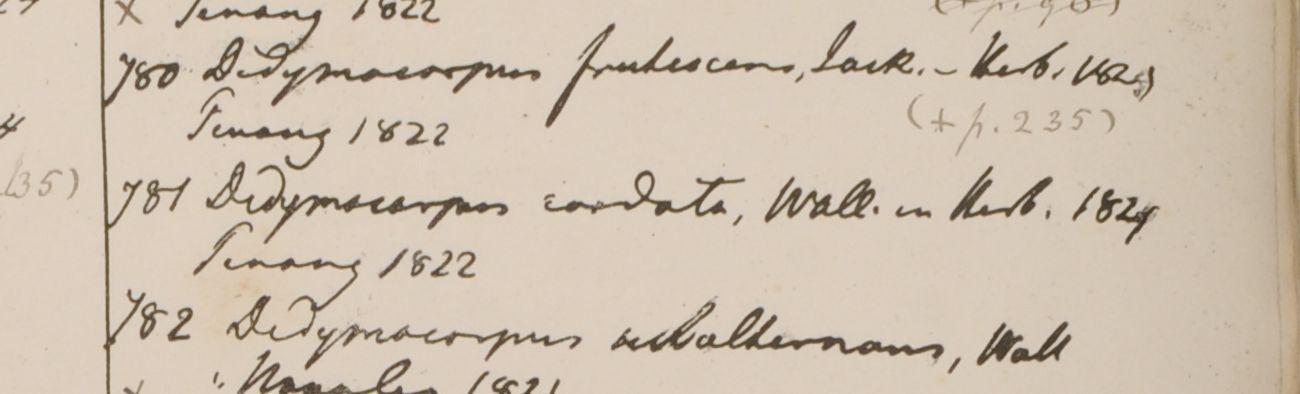 x Penang 1822
780 Didymocarpus frutescens, Jack. – Herb. 1823
Penang 1822 (+ p. 235)
135)
781 Didymocarpus cordata, Wall. in Herb. 1824
Penang 1822
782 Didymocarpus subalternans, Wall
x Napalia 1821